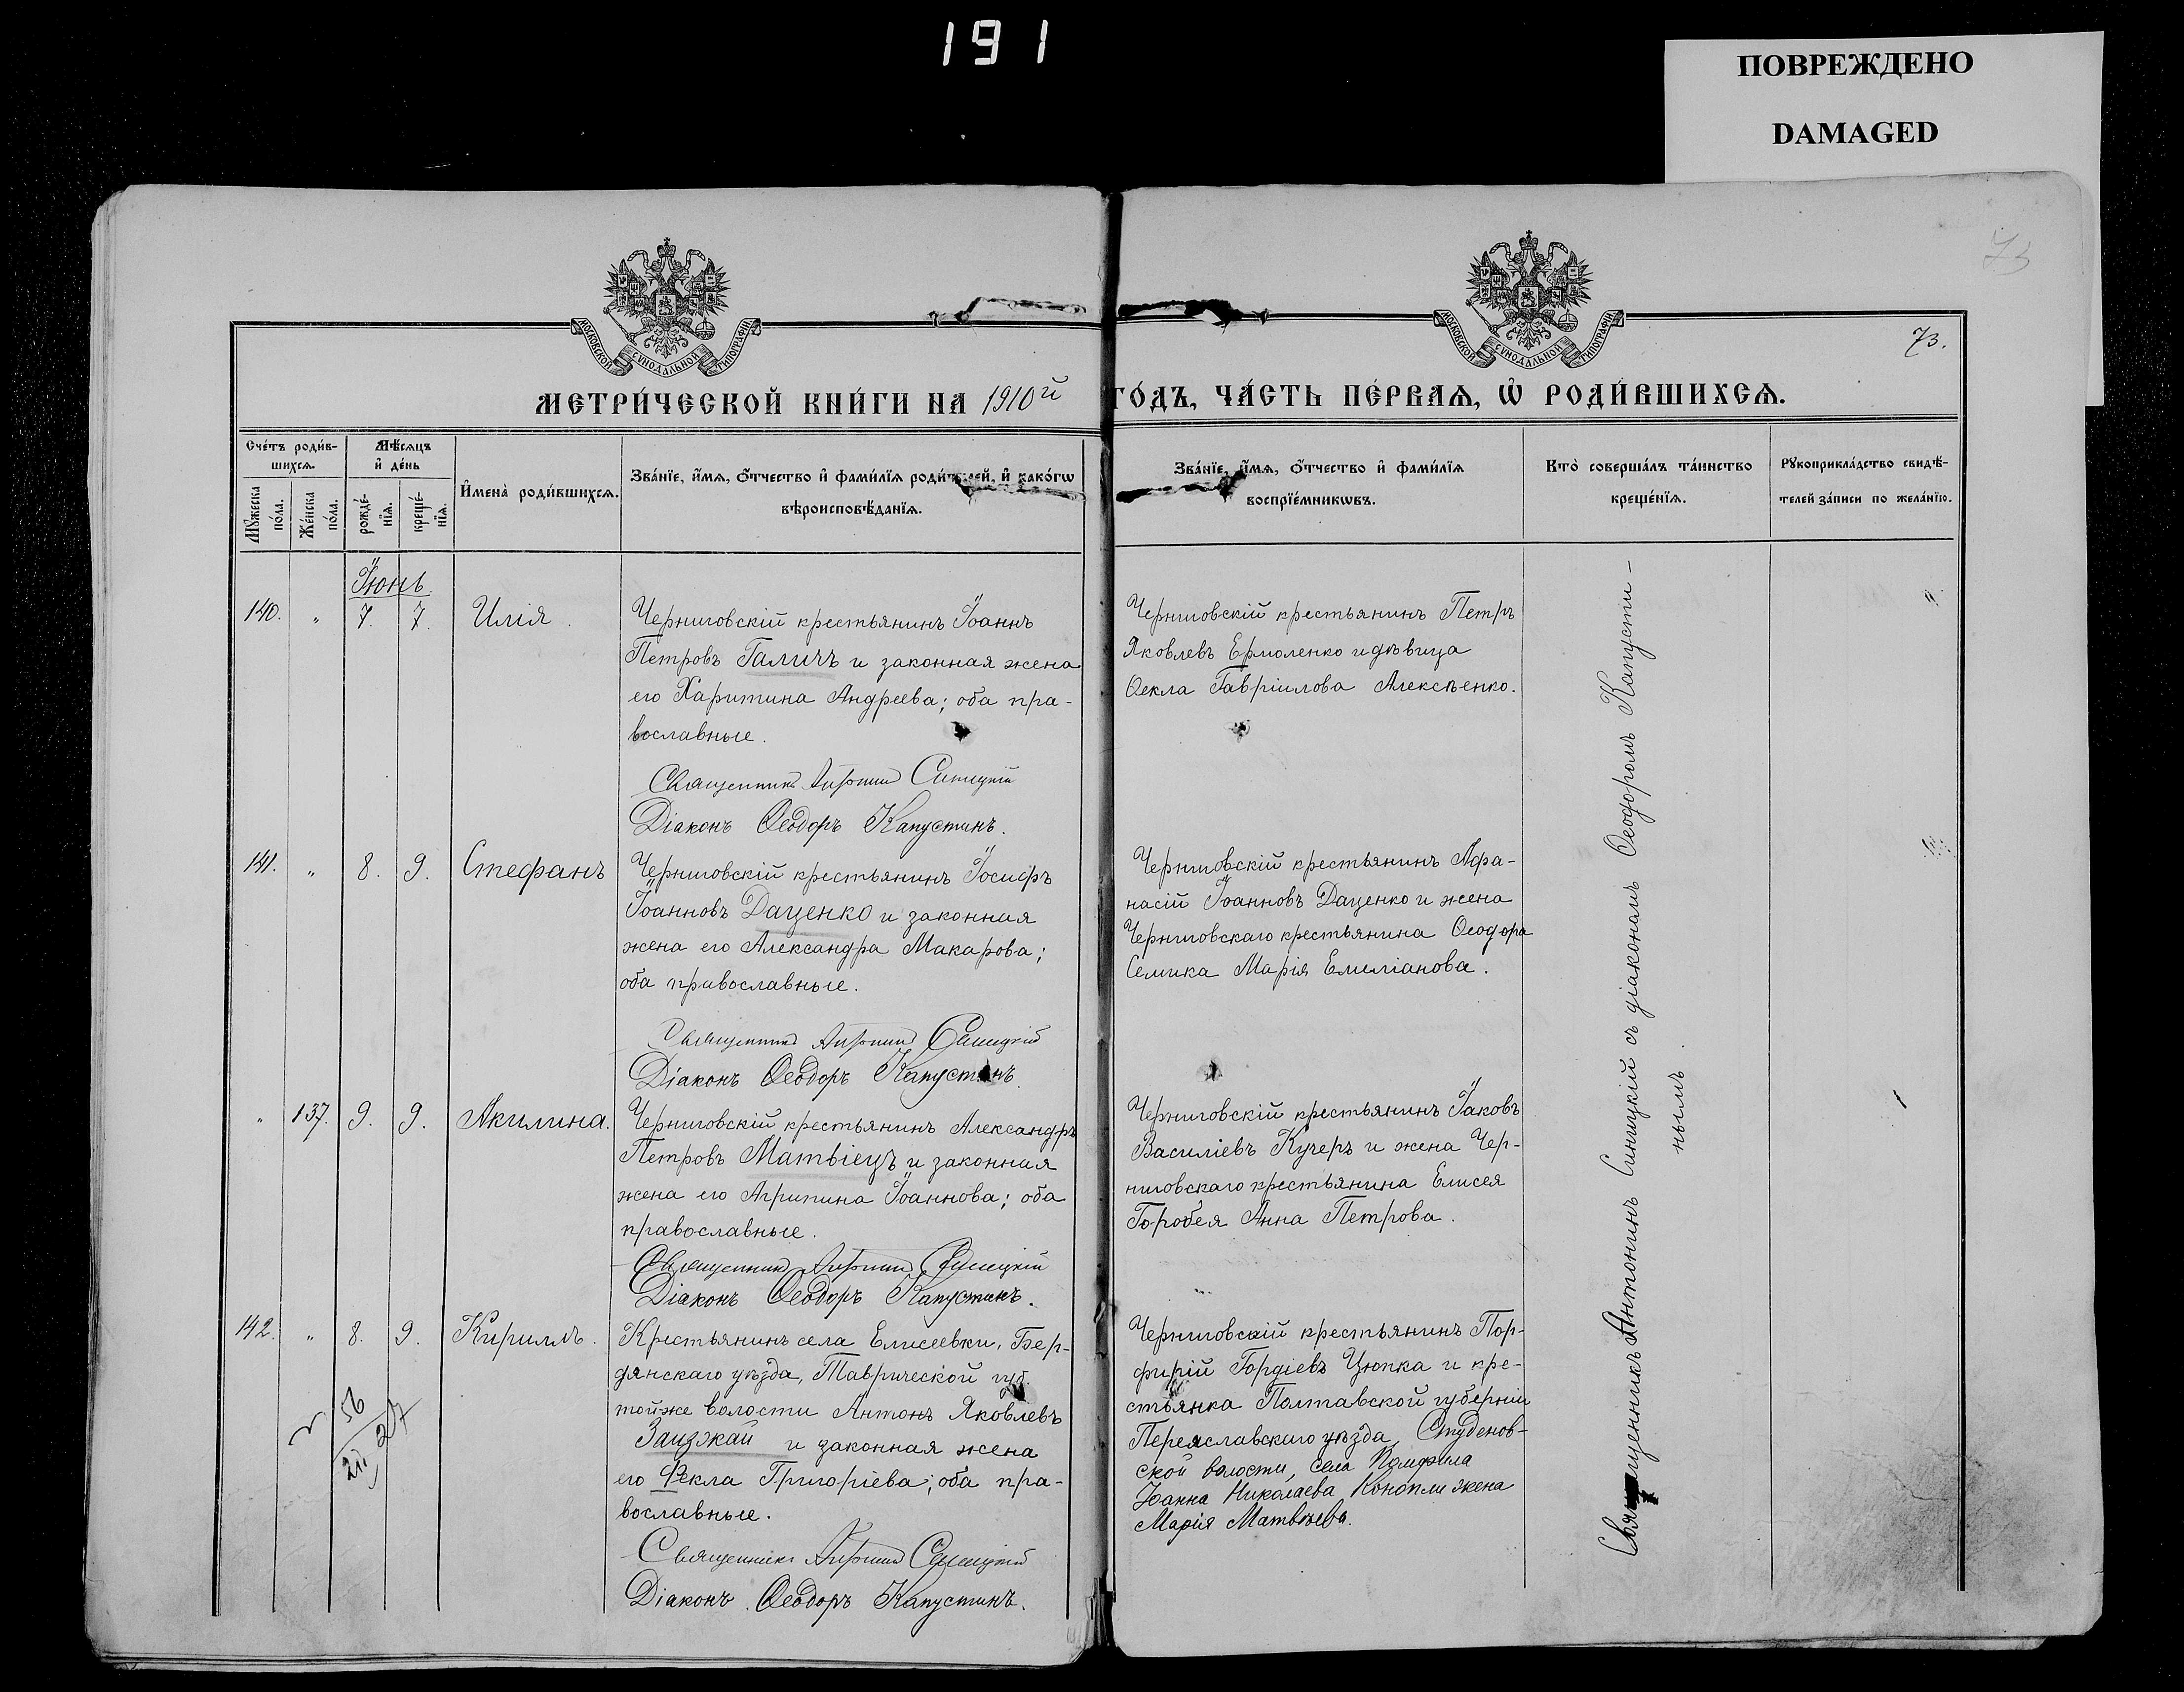 191
ПОВРЕЖДЕНО
DAMAGED
73
МОСКОВСКОЙ СУНОДАЛЬНОЙ ТИПОГРАФІИ
МОСКОВСКОЙ СУНОДАЛЬНОЙ ТИПОГРАФІИ
73.
МЕТРИ́ЧЕСКОЙ КНИ́ГИ НА 1910й
ГО́ДЪ, ЧА́СТЬ ПЕ́РВАѦ, Ѡ҆ РОДИ́ВШИХСѦ.
Сче́тъ роди́в-
шихсѧ.
Мѣ́сѧцъ
и҆ де́нь
Мꙋ́жеска
по́ла.
Же́нска
по́ла.
рожде́-
нїѧ.
креще́-
нїѧ.
И҆мена̀ роди́вшихсѧ.
Зва́нїе, и҆́мѧ, ѻ҆́тчество и҆ фами́лїѧ роди́телей, и҆ како́гѡ
вѣроисповѣ́данїѧ.
Зва́нїе, и҆́мѧ, ѻ҆́тчество и҆ фами́лїѧ
воспрїе́мникѡвъ.
Кто̀ соверша́лъ та́инство
креще́нїѧ.
Рꙋкоприкла́дство свидѣ́-
телей за́писи по жела́нїю.
Іюнь.
140. „ 7. 7. Илія.
Черниговскій крестьянинъ Іоаннъ
Петровъ Галичъ и законная жена
его Харитина Андреева; оба пра-
вославные.
Священникъ Антонин Синицкій
Діаконъ Ѳеодоръ Капустинъ.
Черниговскій крестьянинъ Петръ
Яковлевъ Ермоленко и дѣвица
Ѳекла Гавріилова Алексѣенко.
„
141. „ 8. 9. Стефанъ
Черниговскій крестьянинъ Іосифъ
Іоанновъ Даценко и законная
жена его Александра Макарова;
оба православные.
Священникъ Антонин Синицкій
Діаконъ Ѳеодоръ Капустинъ.
Черниговскій крестьянинъ Афа-
насій Іоанновъ Даценко и жена
Черниговскаго крестьянина Ѳеодора
Семика Марія Емиліанова.
„ 137. 9. 9. Акилина.
Черниговскій крестьянинъ Александръ
Петровъ Матвіецъ и законная
жена его Агрипина Іоаннова; оба
православные.
Священникъ Антонин Синицкій
Діаконъ Ѳеодоръ Капустинъ.
Черниговскій крестьянинъ Іаковъ
Василіевъ Кучеръ и жена Чер-
ниговскаго крестьянина Елисея
Горобея Анна Петрова.
142. „ 8. 9. Кириллъ.
Крестьянинъ села Елисеевки, Бер-
дянскаго уѣзда, Таврической губ.
той-же волости Антонъ Яковлевъ
и законная жена
его Фекла Григоріева; оба пра-
вославные.
Священникъ Антонин Синицкій
Діаконъ Ѳеодоръ Капустинъ.
Черниговскій крестьянинъ Пор-
фирій Гордіевъ Цюпка и кре-
стьянка Полтавской губерніи
Переяславскаго уѣзда, Студенов-
ской волости, села Помфила
Іоанна Николаева Конопли жена
Марія Матвѣева.
Священникъ Антонинъ Синицкій съ діакономъ Ѳеодоромъ Капусти-
нымъ.